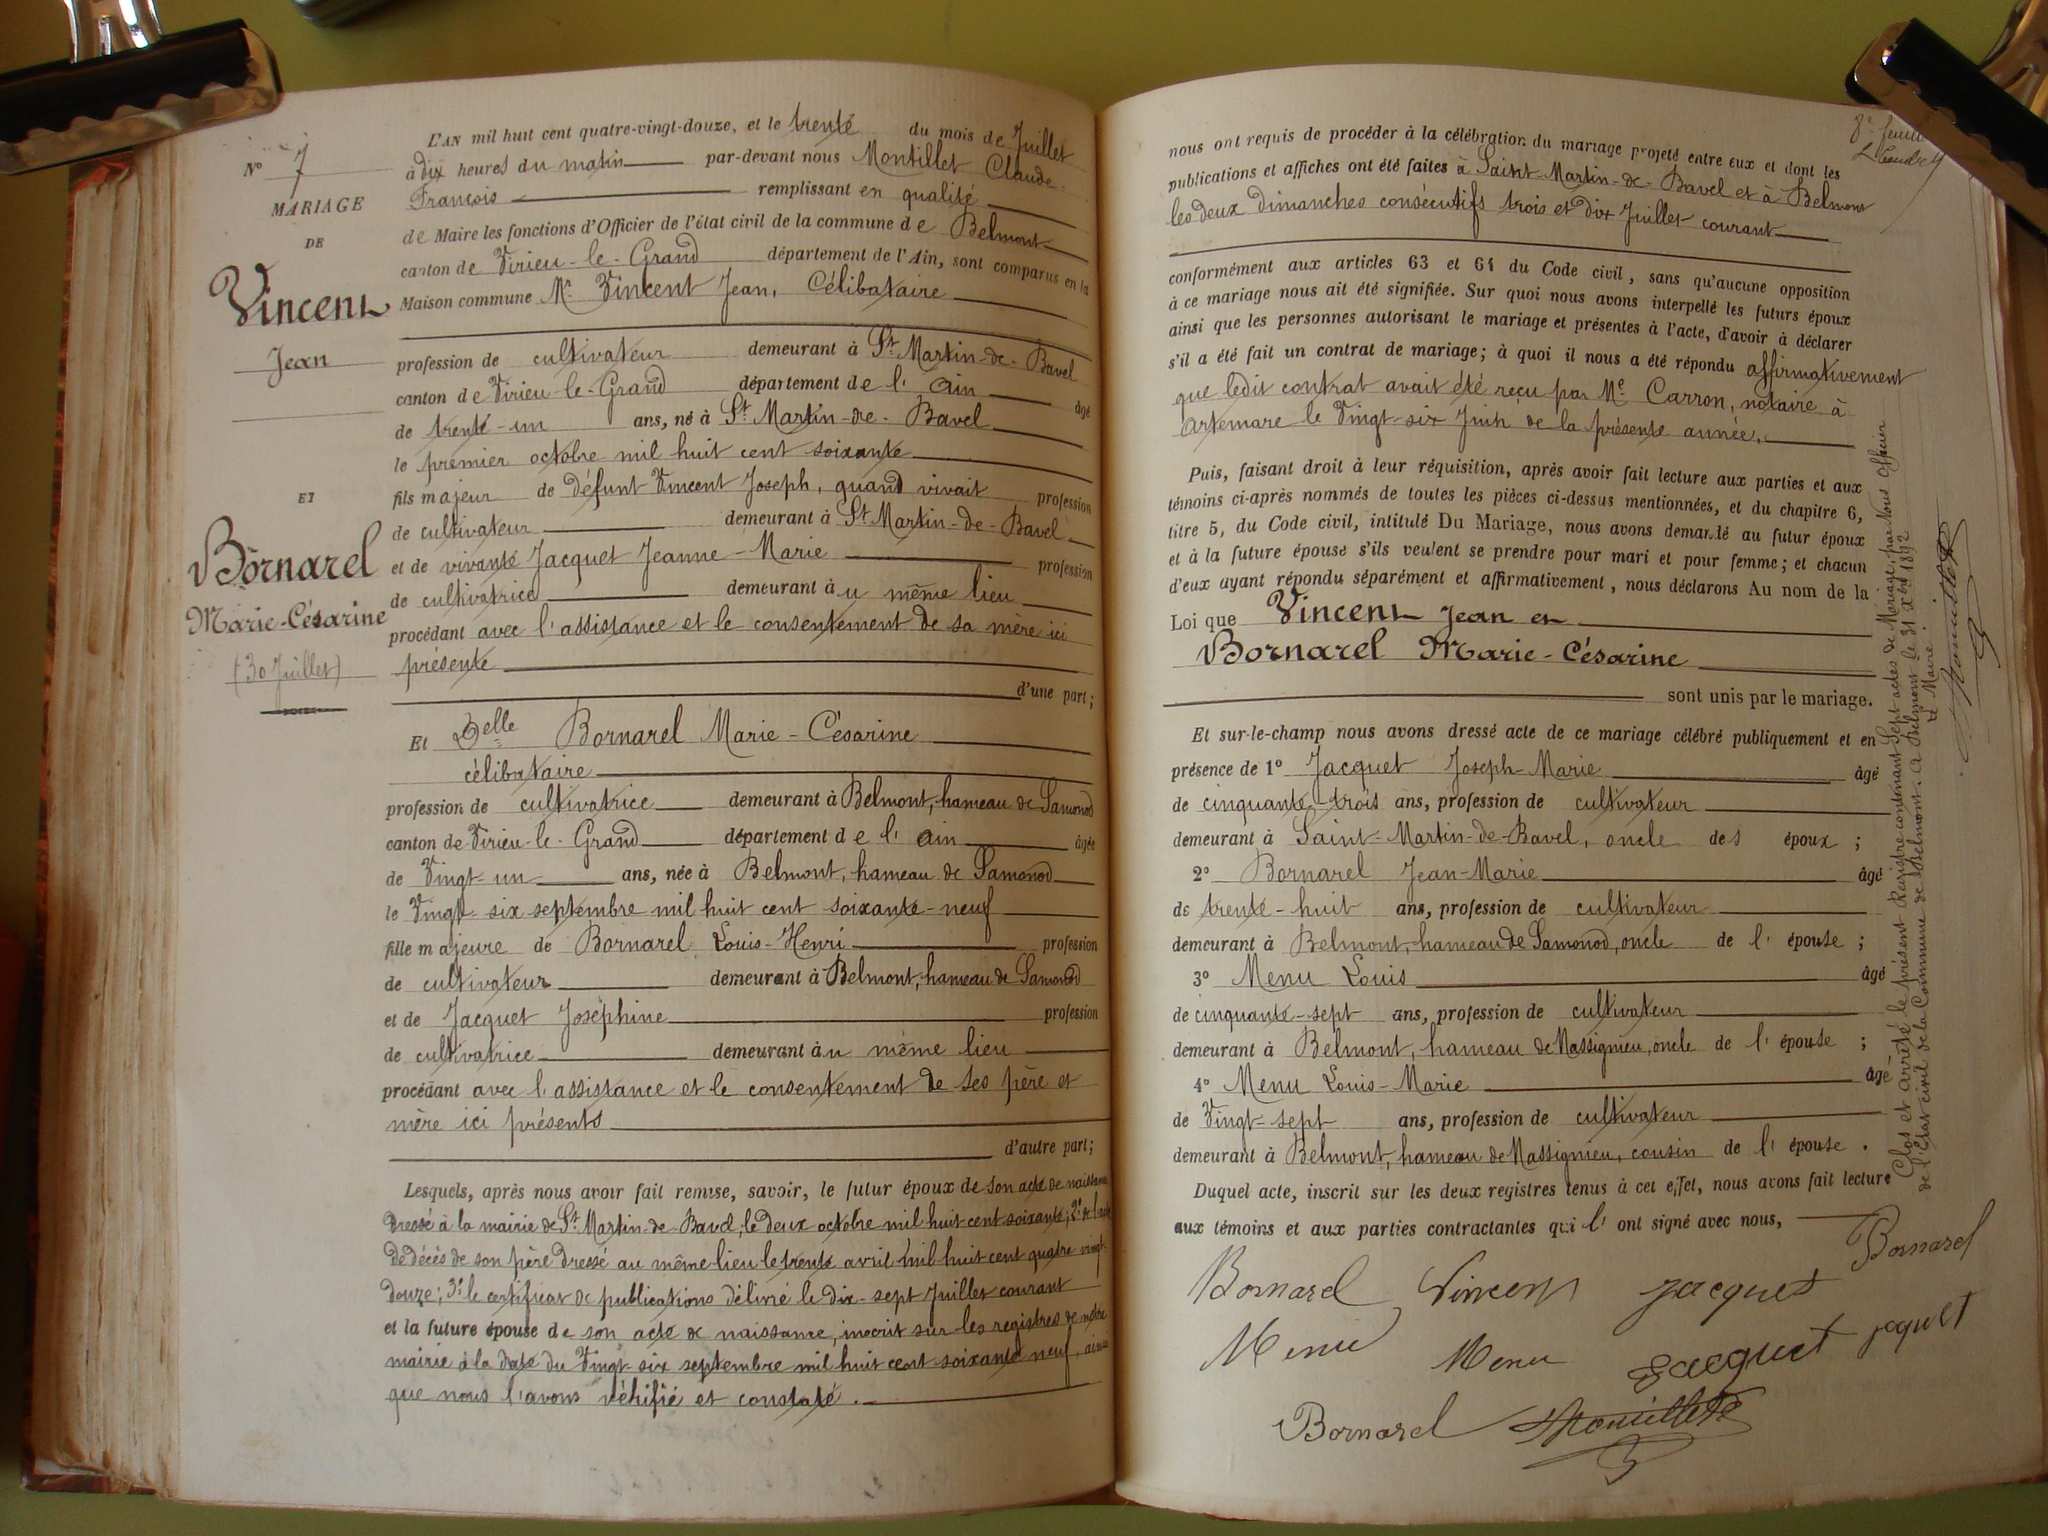 N° 7
MARIAGE
DE
Vincent
Jean
ET
Bornarel
Marie-Césarine
(30 Juillet)
L'AN mil huit cent quatre-vingt-douze, et le trente du mois de Juillet
à dix heures du matin par-devant nous Montillet Claude-
François remplissant en qualité
de Maire les fonctions d'Officier de l'état civil de la commune de Belmont
canton de Virieu-le-Grand département de l'Ain, sont comparus en la
Maison commune Mr Vincent Jean, Célibataire
profession de cultivateur demeurant à St Martin-de-Bavel
canton de Virieu-le-Grand département de l'Ain âgé
de trente-un ans, né à St Martin-de-Bavel
le premier octobre mil huit cent soixante
fils majeur de défunt Vincent Joseph, quand vivait profession
de cultivateur demeurant à St Martin-de-Bavel
et de vivante Jacquet Jeanne-Marie profession
de cultivatrice demeurant au même lieu
procédant avec l'assistance et le consentement de sa mère ici
présente
d'une part;
Et Delle Bornarel Marie-Césarine
célibataire
profession de cultivatrice demeurant à Belmont, hameau de Samonod
canton de Virieu-le-Grand département de l'ain âgée
de Vingt-un ans, née à Belmont, hameau de Samonod
le Vingt-six septembre mil huit cent soixante-neuf
fille majeure de Bornarel Louis-Henri profession
de cultivateur demeurant à Belmont, hameau de Samonod
et de Jacquet Joséphine profession
de cultivatrice demeurant au même lieu
procédant avec l'assistance et le consentement de ses père et
mère ici présents
d'autre part;
Lesquels, après nous avoir fait remise, savoir, le futur époux de son acte de naissance
dressé à la mairie de St Martin-de-Bavel, le deux octobre mil huit cent soixante; 2° de l'acte
de décès de son père dressé au même lieu le trente avril mil huit cent quatre vingt-
douze; 3° le certificat de publications délivré le dix-sept Juillet courant
et la future épouse de son acte de naissance, inscrit sur les registres de notre
mairie à la date du Vingt-six septembre mil huit cent soixante neuf, ainsi
que nous l'avons vérifié et constaté.
8e feuillet
nous ont requis de procéder à la célébration du mariage projeté entre eux et dont les
publications et affiches ont été faites à Saint Martin-de-Bavel et à Belmont
les deux dimanches consécutifs trois et dix Juillet courant
conformément aux articles 63 et 64 du Code civil, sans qu'aucune opposition
à ce mariage nous ait été signifiée. Sur quoi nous avons interpellé les futurs époux
ainsi que les personnes autorisant le mariage et présentes à l'acte, d'avoir à déclarer
s'il a été fait un contrat de mariage; à quoi il nous a été répondu affirmativement
que ledit contrat avait été reçu par Me Carron, notaire à
Artemare le Vingt-six Juin de la présente année.
Puis, faisant droit à leur réquisition, après avoir fait lecture aux parties et aux
témoins ci-après nommés de toutes les pièces ci-dessus mentionnées, et du chapitre 6,
titre 5, du Code civil, intitulé Du Mariage, nous avons demandé au futur époux
et à la future épouse s'ils veulent se prendre pour mari et pour femme; et chacun
d'eux ayant répondu séparément et affirmativement, nous déclarons Au nom de la
Loi que Vincent Jean et
Bornarel Marie-Césarine
sont unis par le mariage.
Et sur-le-champ nous avons dressé acte de ce mariage célébré publiquement et en
présence de 1° Jacquet Joseph-Marie âgé
de cinquante-trois ans, profession de cultivateur
demeurant à Saint-Martin-de-Bavel, oncle des époux;
2° Bornarel Jean-Marie âgé
de trente-huit ans, profession de cultivateur
demeurant à Belmont, hameau de Samonod, oncle de l'épouse;
3° Menu Louis âgé
de cinquante-sept ans, profession de cultivateur
demeurant à Belmont, hameau de Massignieu, oncle de l'épouse;
4° Menu Louis-Marie âgé
de Vingt-sept ans, profession de cultivateur
demeurant à Belmont, hameau de Massignieu, cousin de l'épouse.
Duquel acte, inscrit sur les deux registres tenus à cet effet, nous avons fait lecture
aux témoins et aux parties contractantes qui l'ont signé avec nous,
Bornarel Vincent Jacquet Bornarel
Menu Menu Jacquet Jaquet
Bornarel Montillet
Clos et arrêté le présent Registre contenant Sept actes de Mariage, par Nous Officier
de l'Etat civil de la Commune de Belmont. A Belmont le 31 Xbre 1892
Le Maire
Montillet